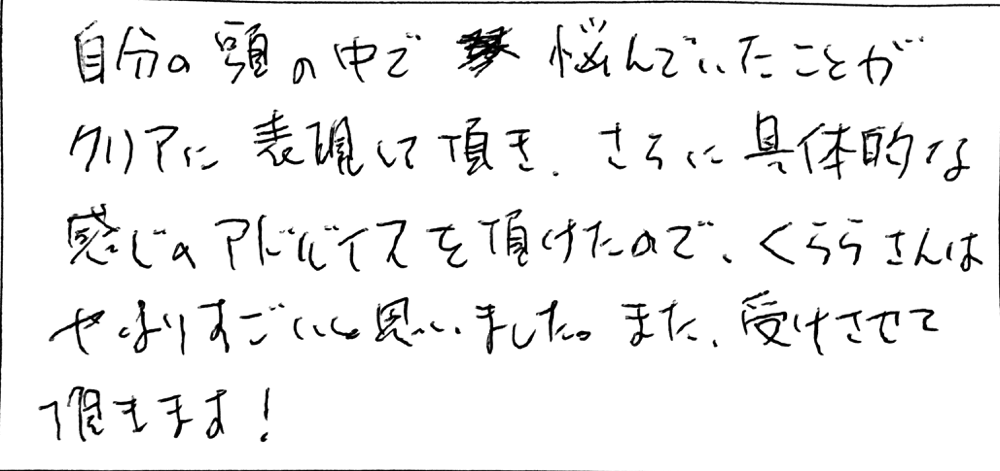 自分の頭の中で悩んでいたことが
クリアに表現して頂き、さらに具体的な
感じのアドバイスを頂けたので、くららさんは
やはりすごいと思いました。また、受けさせて
頂きます!